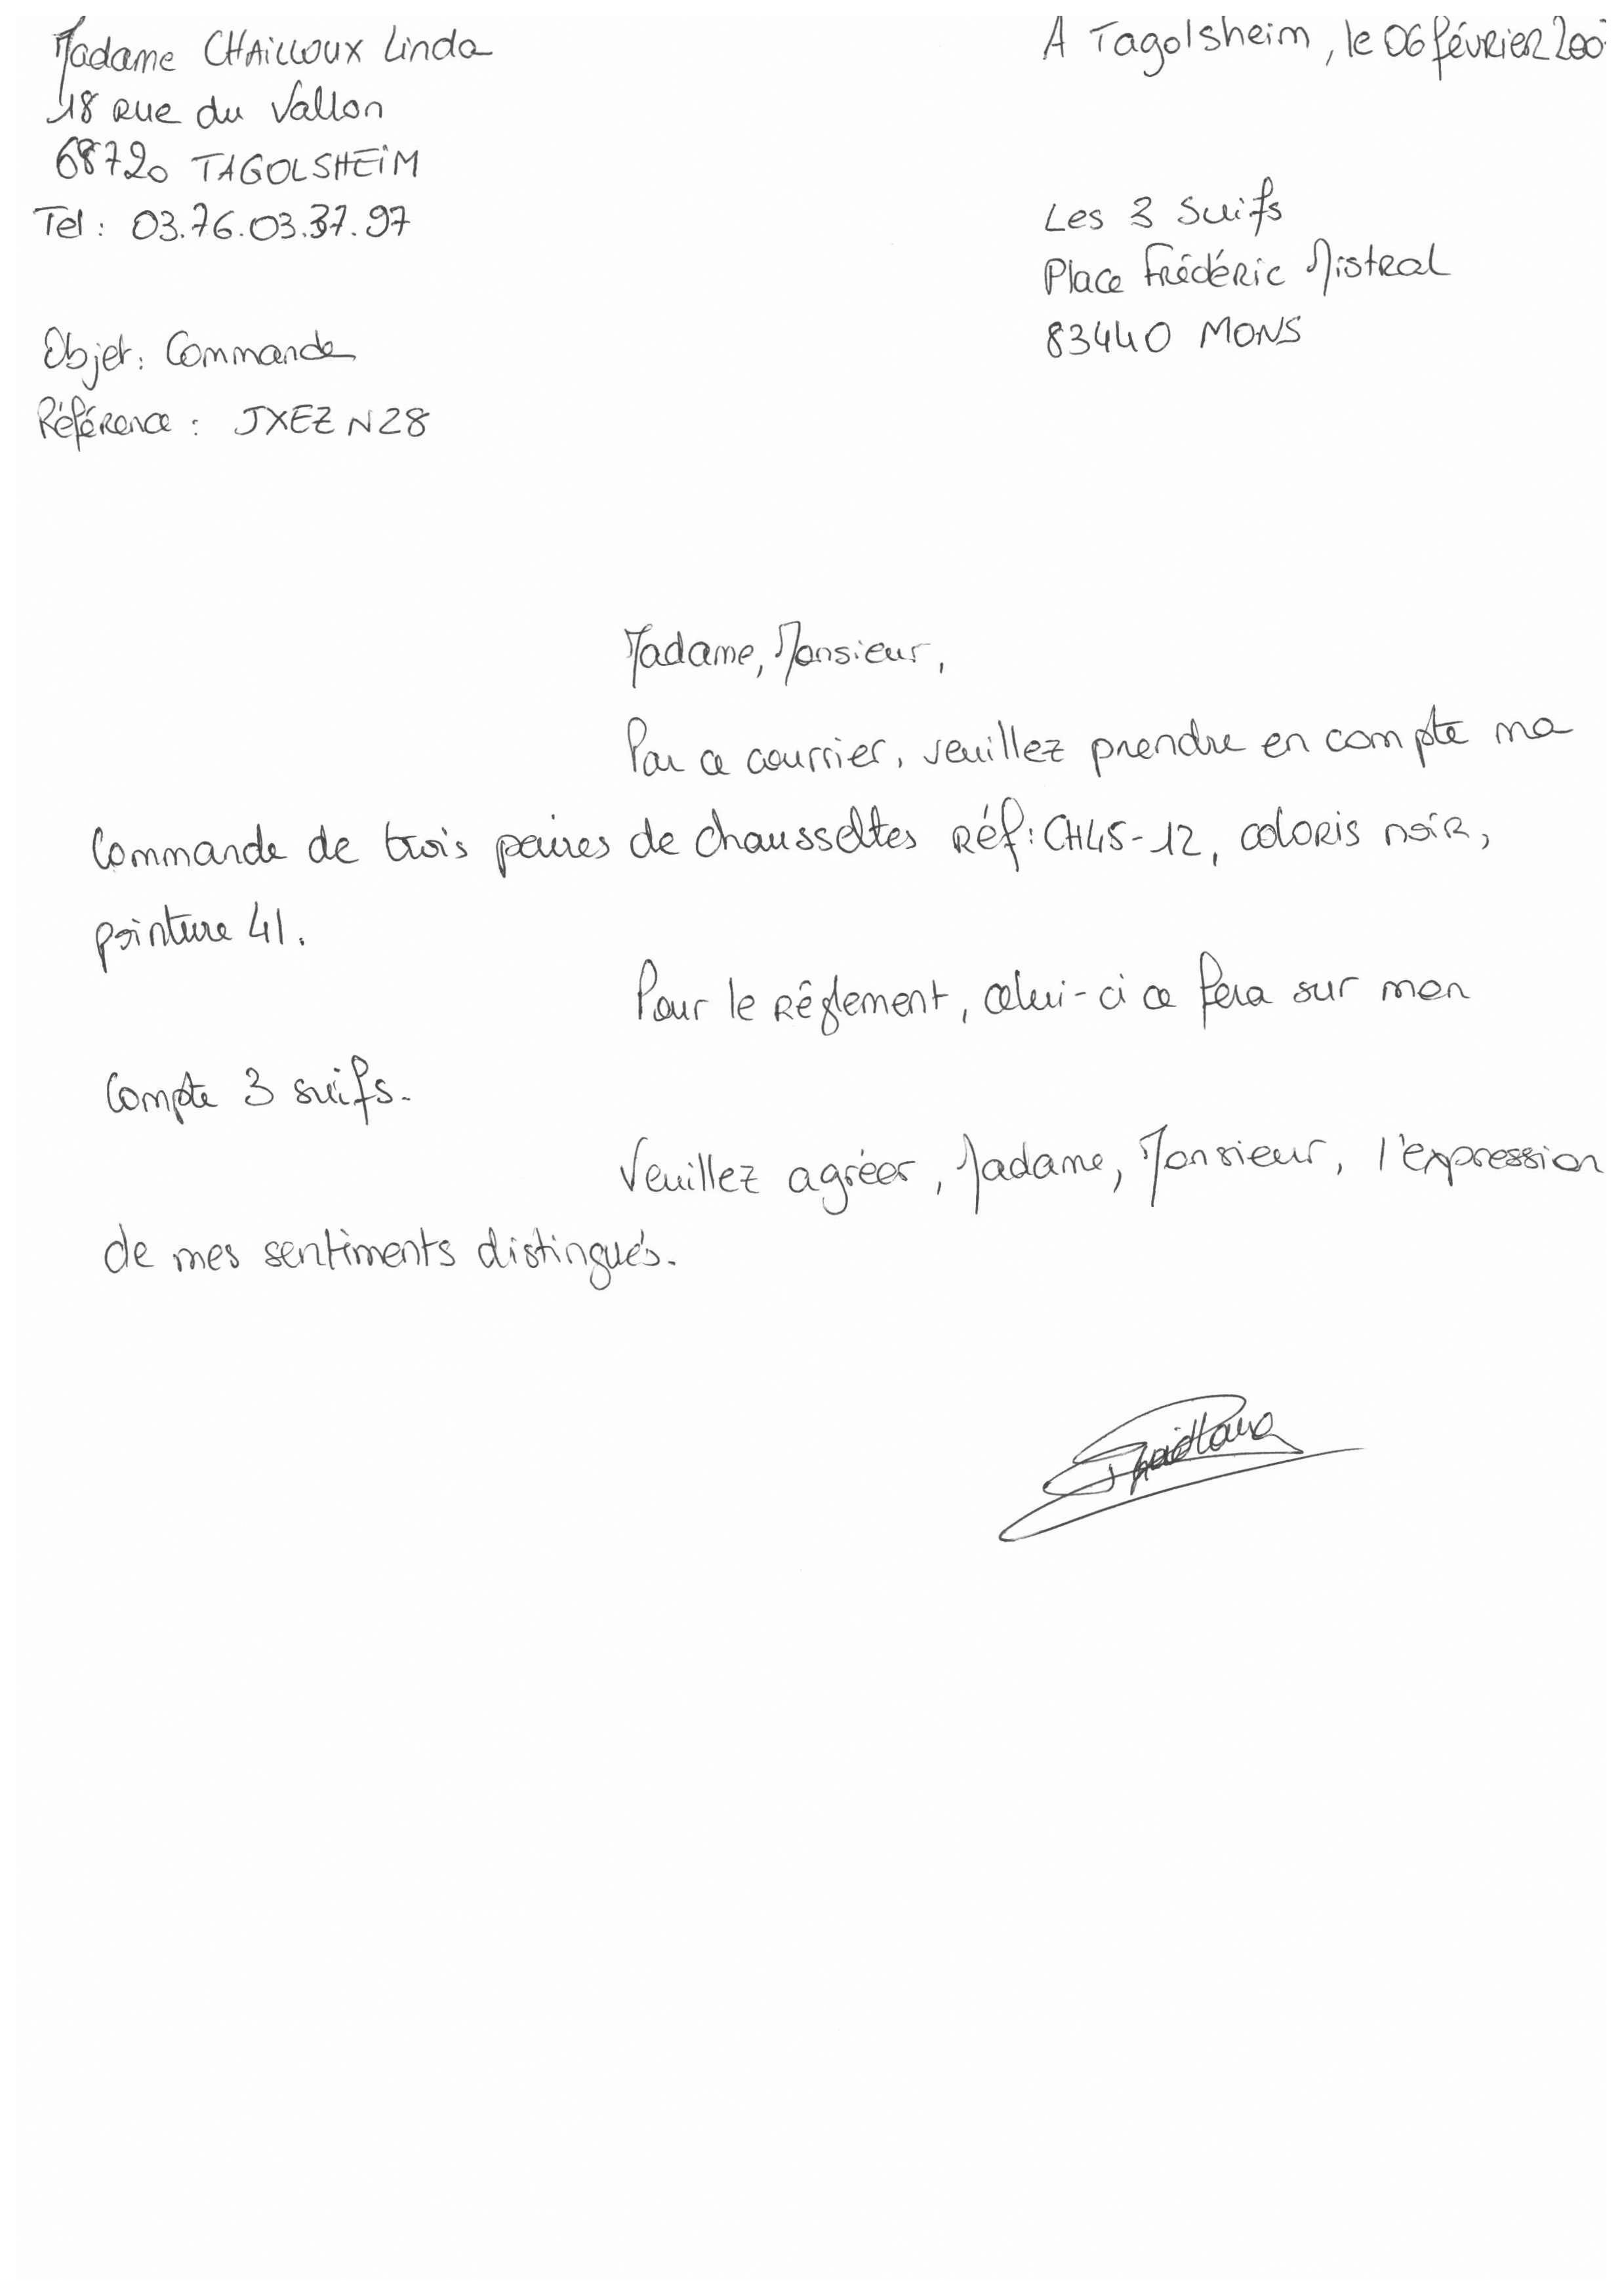 Madame CHAILLOUX Linda
18 rue du Vallon
68720 TAGOLSHEIM
Tel : 03.76.03.37.97
A Tagolsheim, le 06 février 200
Les 3 Suifs
Place Frédéric Mistral
83440 MONS
Objet : Commande
Référence : JXEZN28
Madame, Monsieur,
Par ce courrier, veuillez prendre en compte ma
commande de trois paires de chaussettes Réf : CH45-12, coloris noir,
pointure 41.
Pour le réglement, celui-ci ce fera sur mon
compte 3 suifs.
Veuillez agréer, Madame, Monsieur, l'expression
de mes sentiments distingués.